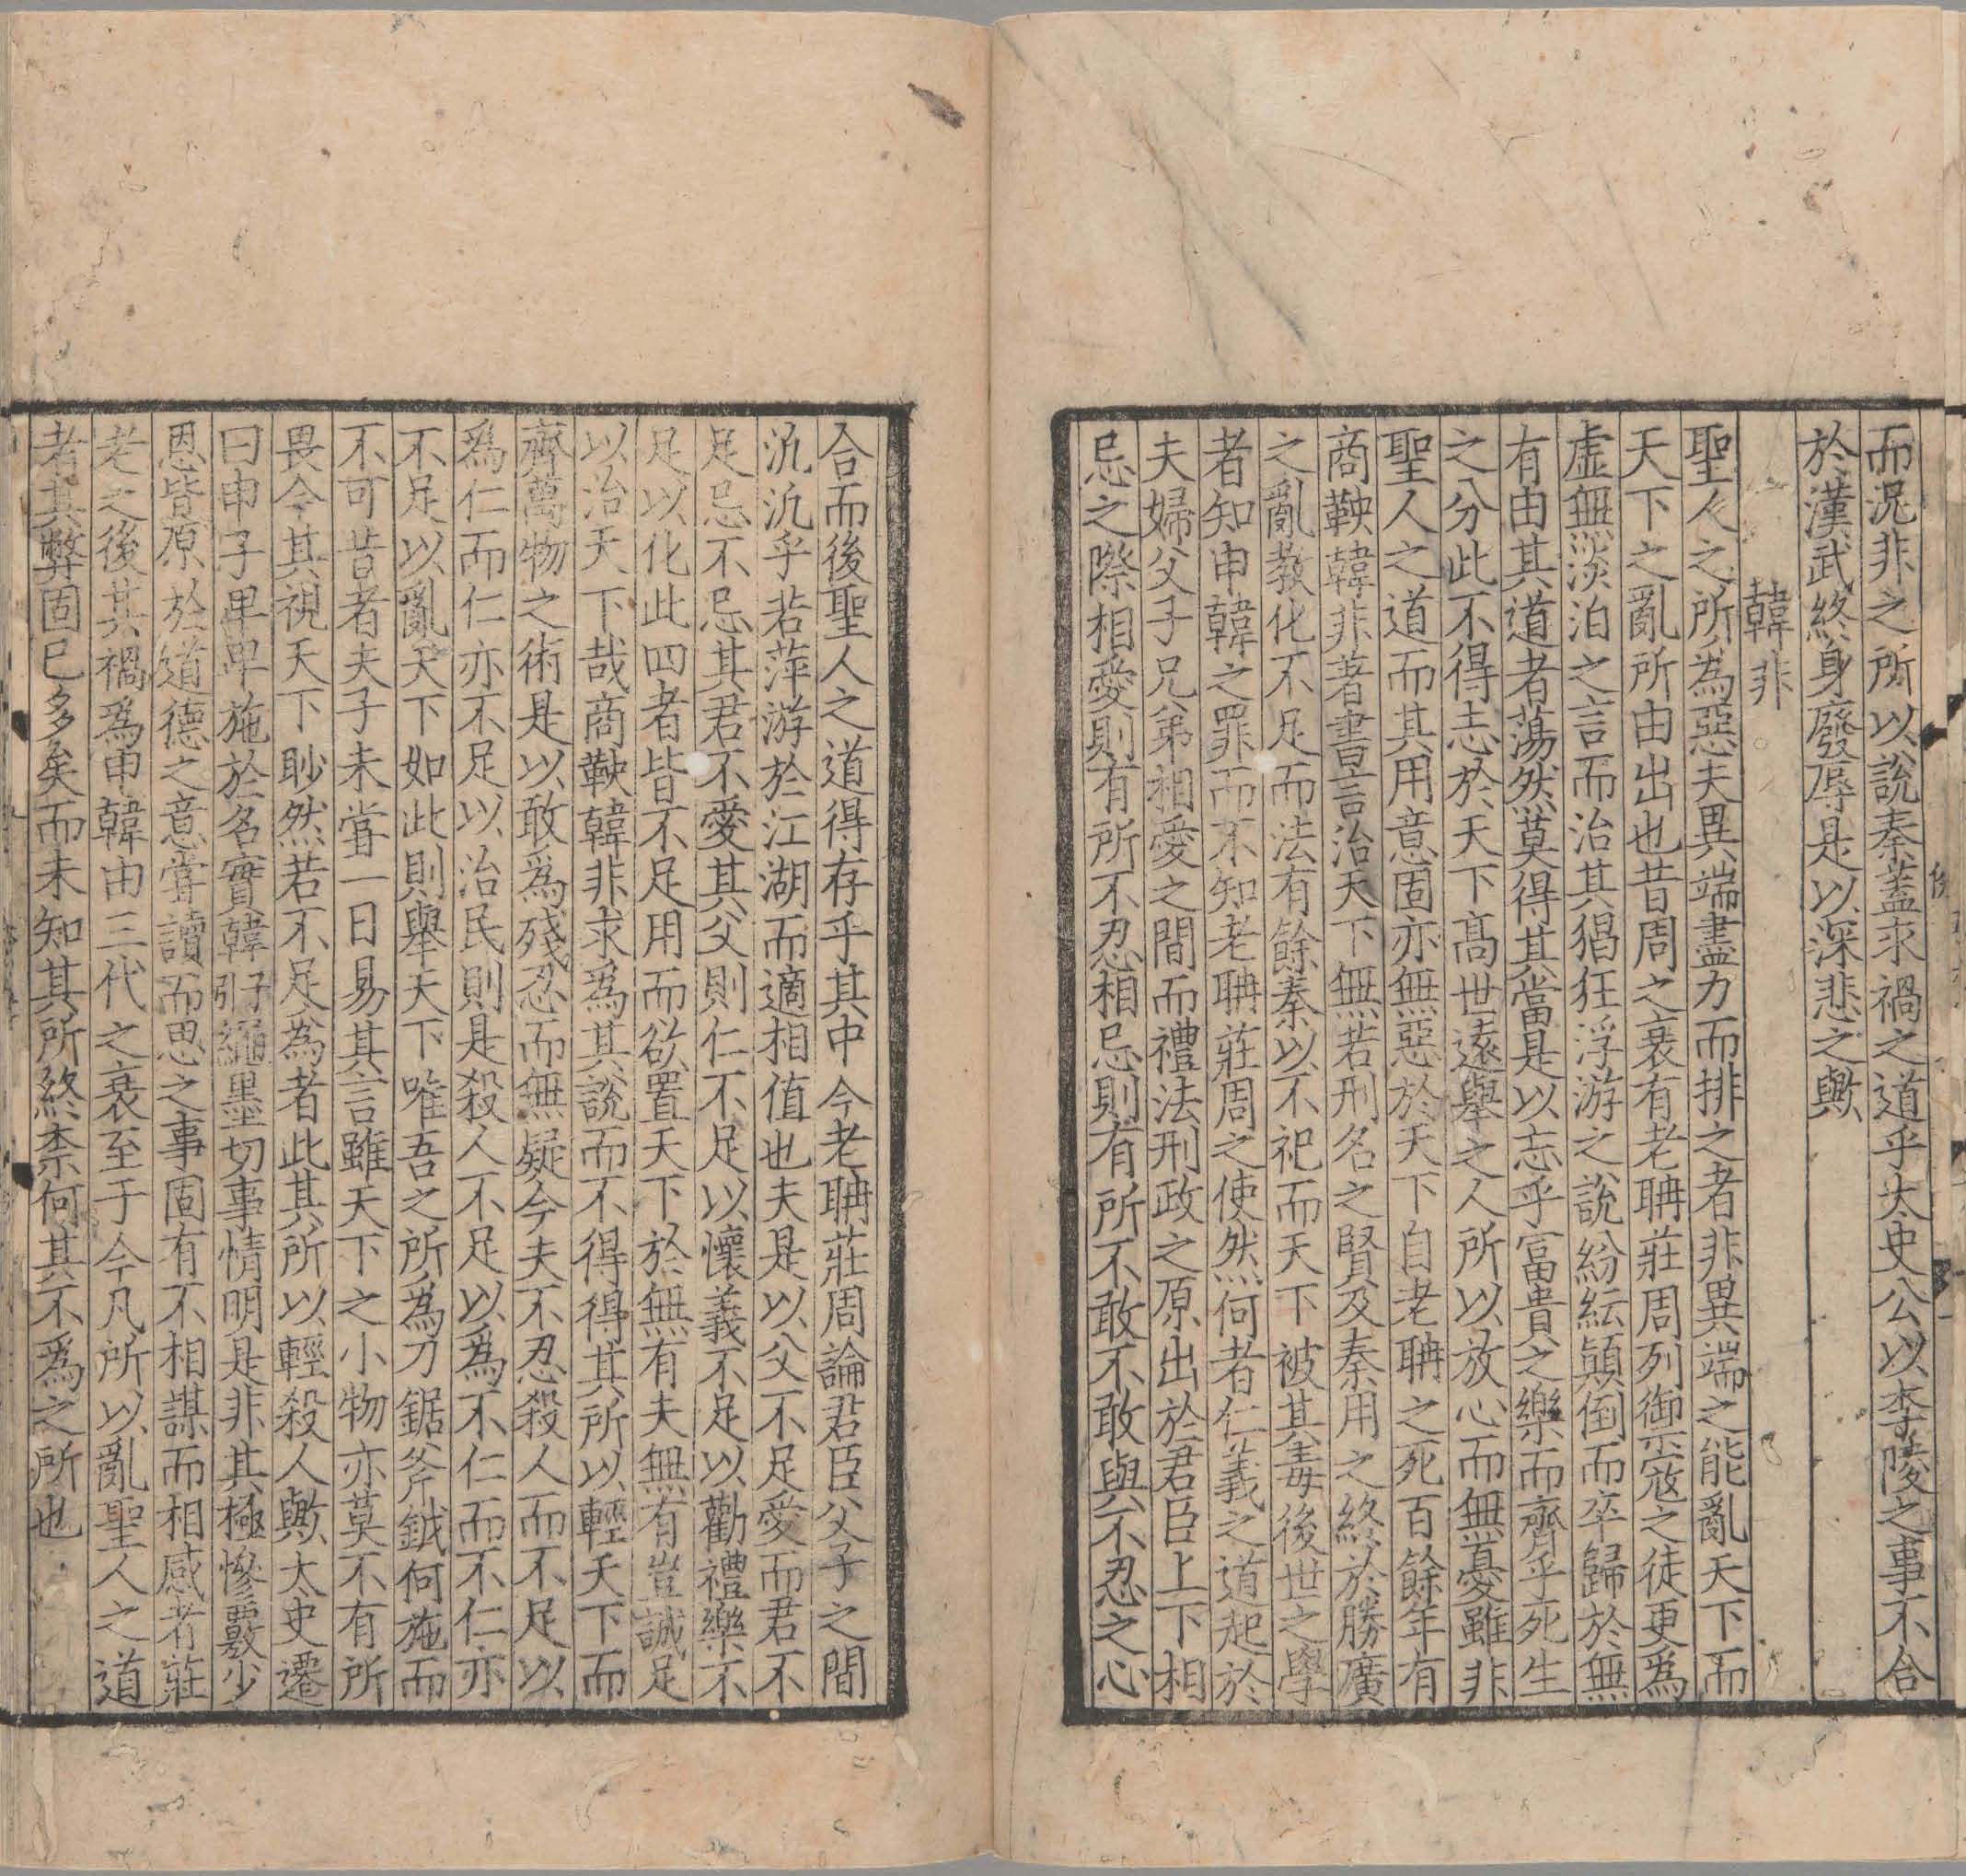 而況非之所以說秦蓋求禍之道乎太史公以李陵之事不合
於漢武終身廢辱是以深悲之歟
韓非
聖人之所爲惡夫異端盡力而排之者非異端之能亂天下而
天下之亂所由出也昔周之衰有老聃莊周列御寇之徒更爲
虛無淡泊之言而治其猖狂浮游之說紛紜顛倒而卒歸於無
有由其道者蕩然莫得其當是以忘乎富貴之樂而齊乎死生
之分此不得志於天下高世遠舉之人所以放心而無憂雖非
聖人之道而其用意固亦無惡於天下自老聃之死百餘年有
商鞅韓非著書言治天下無若刑名之賢及秦用之終於勝廣
之亂教化不足而法有餘秦以不祀而天下被其毒後世之學
者知申韓之罪而不知老聃莊周之使然何者仁義之道起於
夫婦父子兄弟相愛之間而禮法刑政之原出於君臣上下相
忌之際相愛則有所不忍相忌則有所不敢不敢與不忍之心
合而後聖人之道得存乎其中今老聃莊周論君臣父子之間
汎汎乎若萍游於江湖而適相值也夫是以父不足愛而君不
足忌不忌其君不愛其父則仁不足以懷義不足以勸禮樂不
足以化此四者皆不足用而欲置天下於無有夫無有豈誠足
以治天下哉商鞅韓非求爲其說而不得得其所以輕天下而
齊萬物之術是以敢爲殘忍而無疑今夫不忍殺人而不足以
爲仁而仁亦不足以治民則是殺人不足以爲不仁而不仁亦
不足以亂天下如此則舉天下唯吾之所爲刀鋸斧鉞何施而
不可昔者夫子未甞一日易其言雖天下之小物亦莫不有所
畏今其視天下眇然若不足爲者此其所以輕殺人歟太史遷
曰申子卑卑施於名實韓子引繩墨切事情明是非其極慘覈少
恩皆原於道德之意甞讀而思之事固有不相謀而相感者莊
老之後其禍爲申韓由三代之衰至于今凡所以亂聖人之道
者其弊固已多矣而未知其所終柰何其不爲之所也